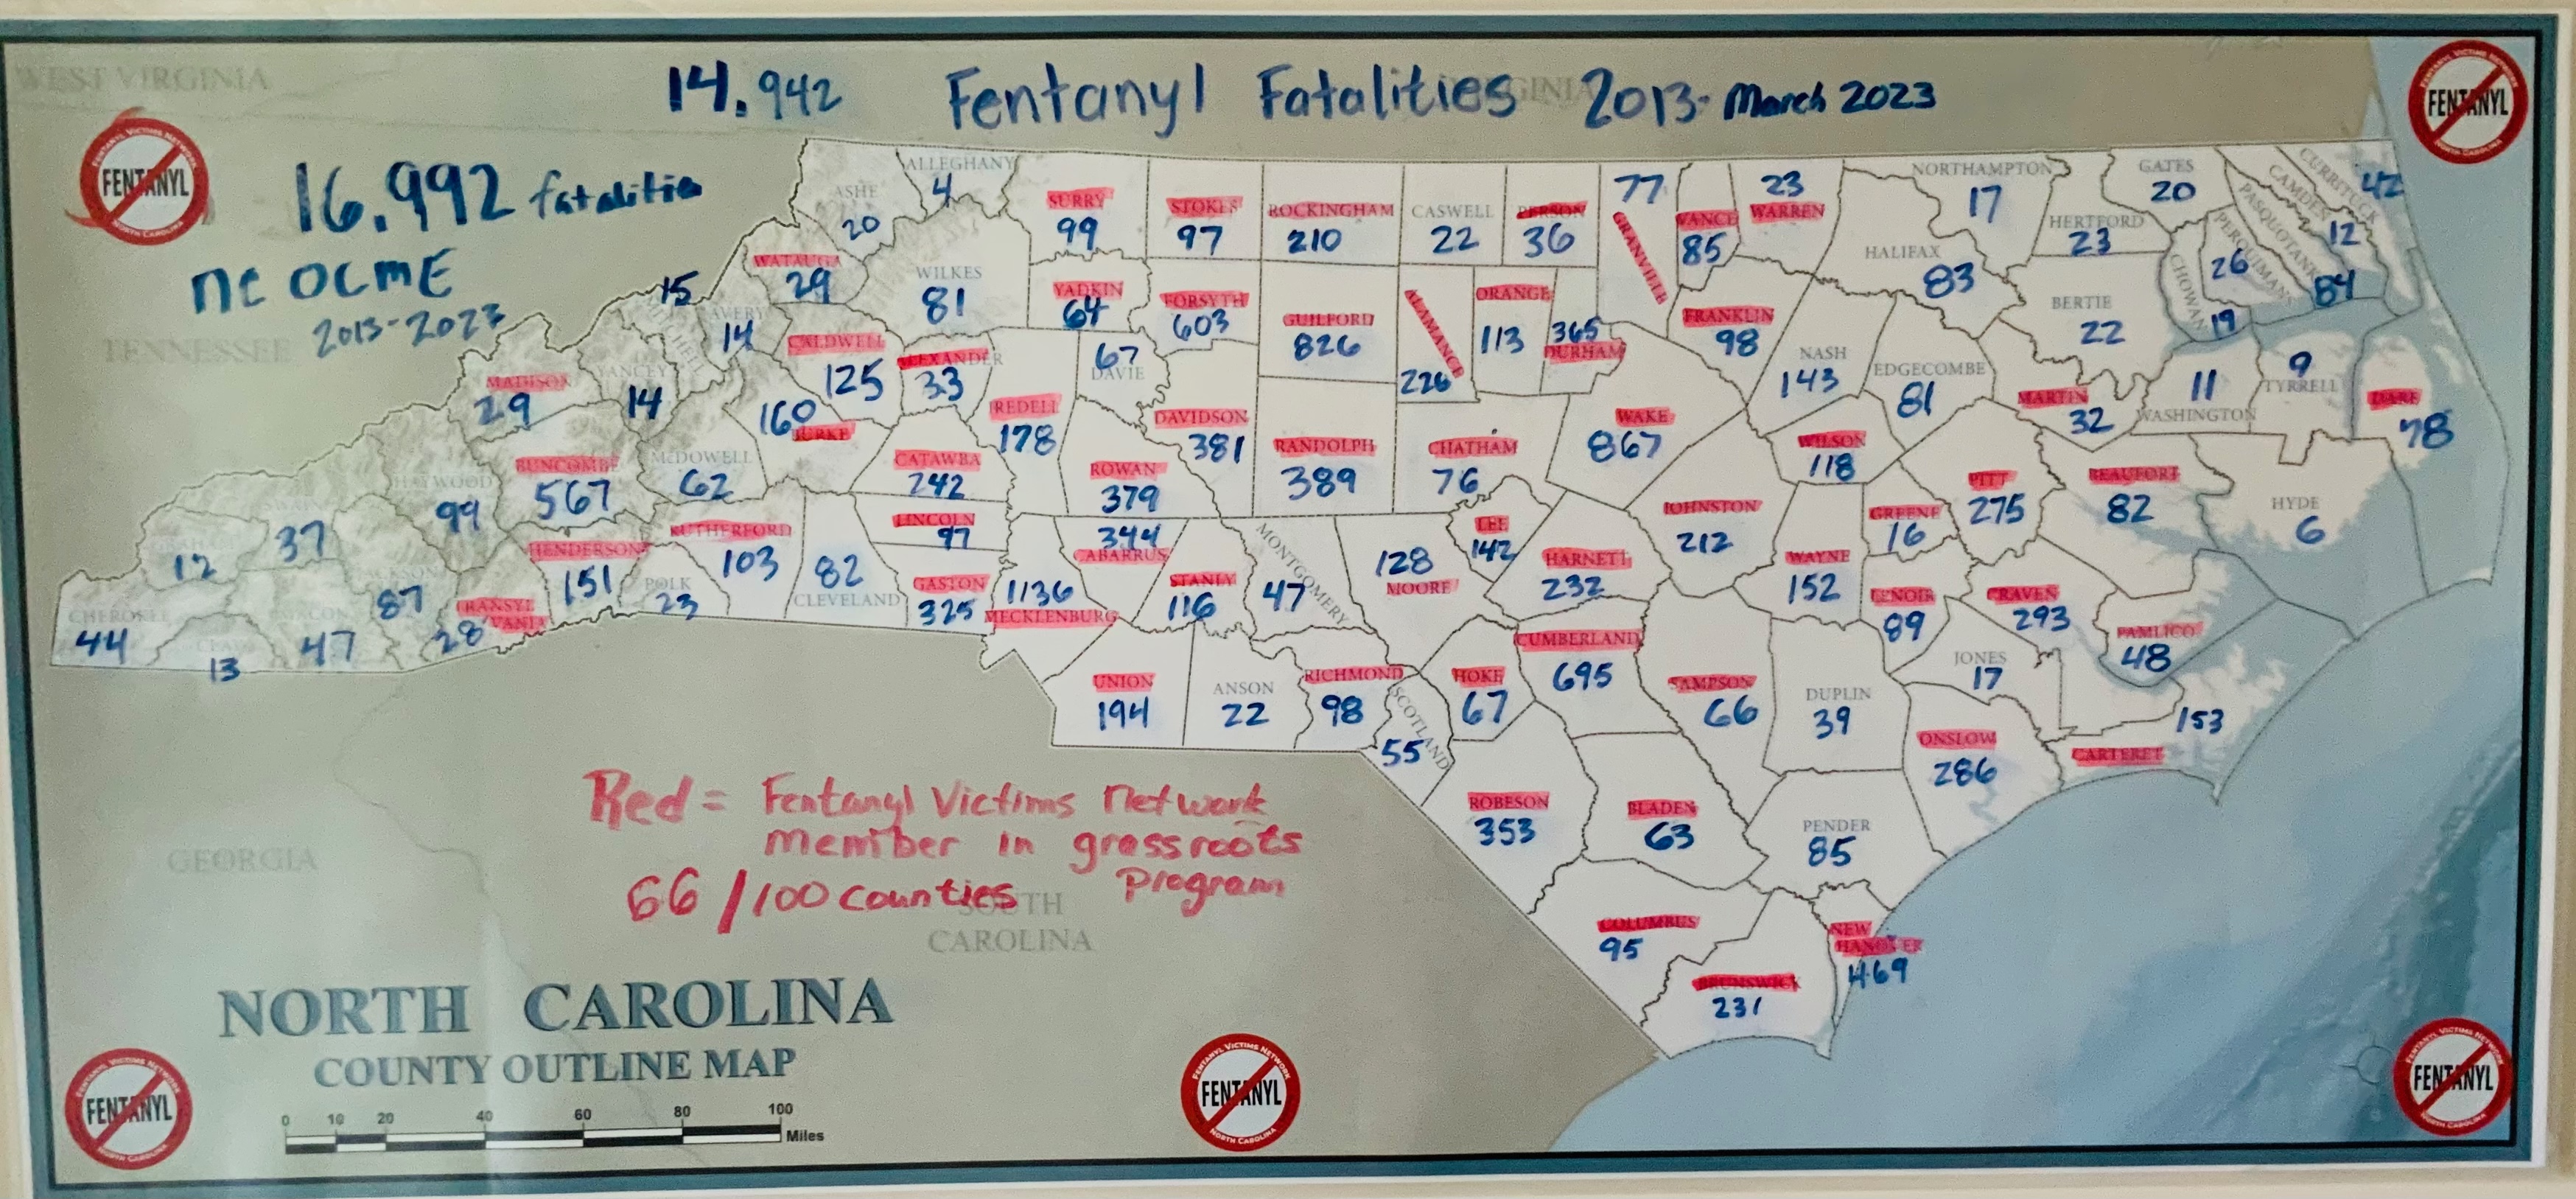 WEST VIRGINIA
VIRGINIA
14.942 Fentanyl Fatalities 2013- March 2023
FENTANYL VICTIMS NETWORK
FENTANYL
NORTH CAROLINA
FENTANYL VICTIMS NETWORK
FENTANYL
NORTH CAROLINA
16.992 fatalities
nc OCME
2013-2023
TENNESSEE
ALLEGHANY
4
ASHE
20
SURRY
99
STOKES
97
ROCKINGHAM
210
CASWELL
22
PERSON
36
77
GRANVILLE
VANCE
85
23
WARREN
NORTHAMPTON
17
GATES
20
HERTFORD
23
CURRITUCK
42
CAMDEN
12
PASQUOTANK
84
PERQUIMANS
26
CHOWAN
19
HALIFAX
83
BERTIE
22
WATAUGA
29
WILKES
81
YADKIN
64
FORSYTH
603
GUILFORD
826
ALAMANCE
226
ORANGE
113
365
DURHAM
FRANKLIN
98
NASH
143
EDGECOMBE
81
MARTIN
32
11
WASHINGTON
9
TYRRELL
DARE
78
15
MITCHELL
AVERY
14
CALDWELL
125
ALEXANDER
33
67
DAVIE
MADISON
29
YANCEY
14
160
BURKE
IREDELL
178
DAVIDSON
381
RANDOLPH
389
CHATHAM
76
WAKE
867
WILSON
118
PITT
275
BEAUFORT
82
HYDE
6
BUNCOMBE
567
MCDOWELL
62
CATAWBA
242
ROWAN
379
HAYWOOD
99
37
12
LINCOLN
97
344
CABARRUS
MONTGOMERY
47
128
MOORE
LEE
142
HARNETT
232
JOHNSTON
212
GREENE
16
WAYNE
152
LENOIR
89
CRAVEN
293
PAMLICO
48
RUTHERFORD
103
HENDERSON
151
POLK
23
82
CLEVELAND
GASTON
325
1136
MECKLENBURG
STANLY
116
CHEROKEE
44
CLAY
13
MACON
47
JACKSON
87
TRANSYL
VANIA
28
UNION
194
ANSON
22
RICHMOND
98
SCOTLAND
55
HOKE
67
CUMBERLAND
695
SAMPSON
66
DUPLIN
39
JONES
17
ONSLOW
286
153
CARTERET
ROBESON
353
BLADEN
63
PENDER
85
COLUMBUS
95
BRUNSWICK
231
NEW
HANOVER
469
Red = Fentanyl Victims Network
member in grassroots
Program
66/100 counties
GEORGIA
SOUTH
CAROLINA
NORTH CAROLINA
COUNTY OUTLINE MAP
0 10 20 40 60 80 100
Miles
FENTANYL VICTIMS NETWORK
FENTANYL
NORTH CAROLINA
FENTANYL VICTIMS NETWORK
FENTANYL
NORTH CAROLINA
FENTANYL VICTIMS NETWORK
FENTANYL
NORTH CAROLINA